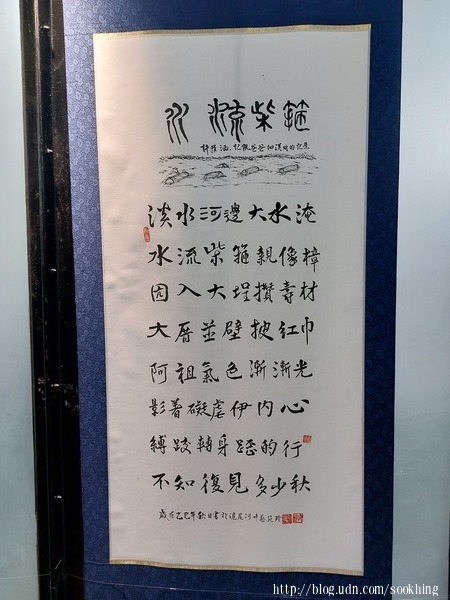 水流柴箍
淡水河邊大水淹
水流柴箍親像樟
因入大埕攢壽材
大厝並壁披紅巾
阿祖氣色漸漸光
影著礙虐伊內心
縛跤轉身踅的行
不知復見多少秋
歲在乙巳年秋日書於
http://blog.udn.com/sookhing